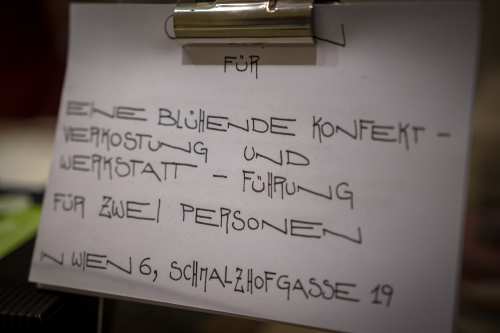 FÜR
EINE BLÜHENDE KONFEKT-
VERKOSTUNG UND
WERKSTATT - FÜHRUNG
FÜR ZWEI PERSONEN
N WIEN 6, SCHMALZHOFGASSE 19